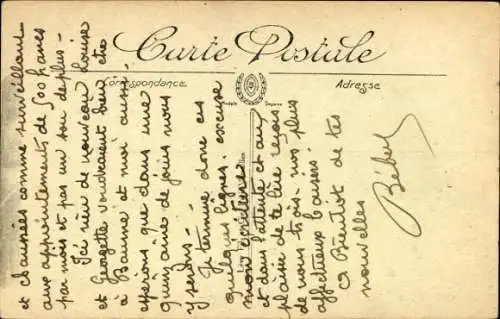 Carte Postale
Correspondance
Adresse
et chaussées comme surveillant
aux appointements de 500 francs
par mois et pas un sou de plus -
Ici rien de nouveau Louise
et Georgette voudraient bien être
à Beaune et moi aussi.
espérons que dans une
quinzaine de jours nous
y serons -
Je termine donc ces
quelques lignes. excuse
mon écriture
et dans l'attente et au
plaisir de te lire reçois
de nous trois - nos plus
affectueux baisers.
À Bientôt de tes
nouvelles